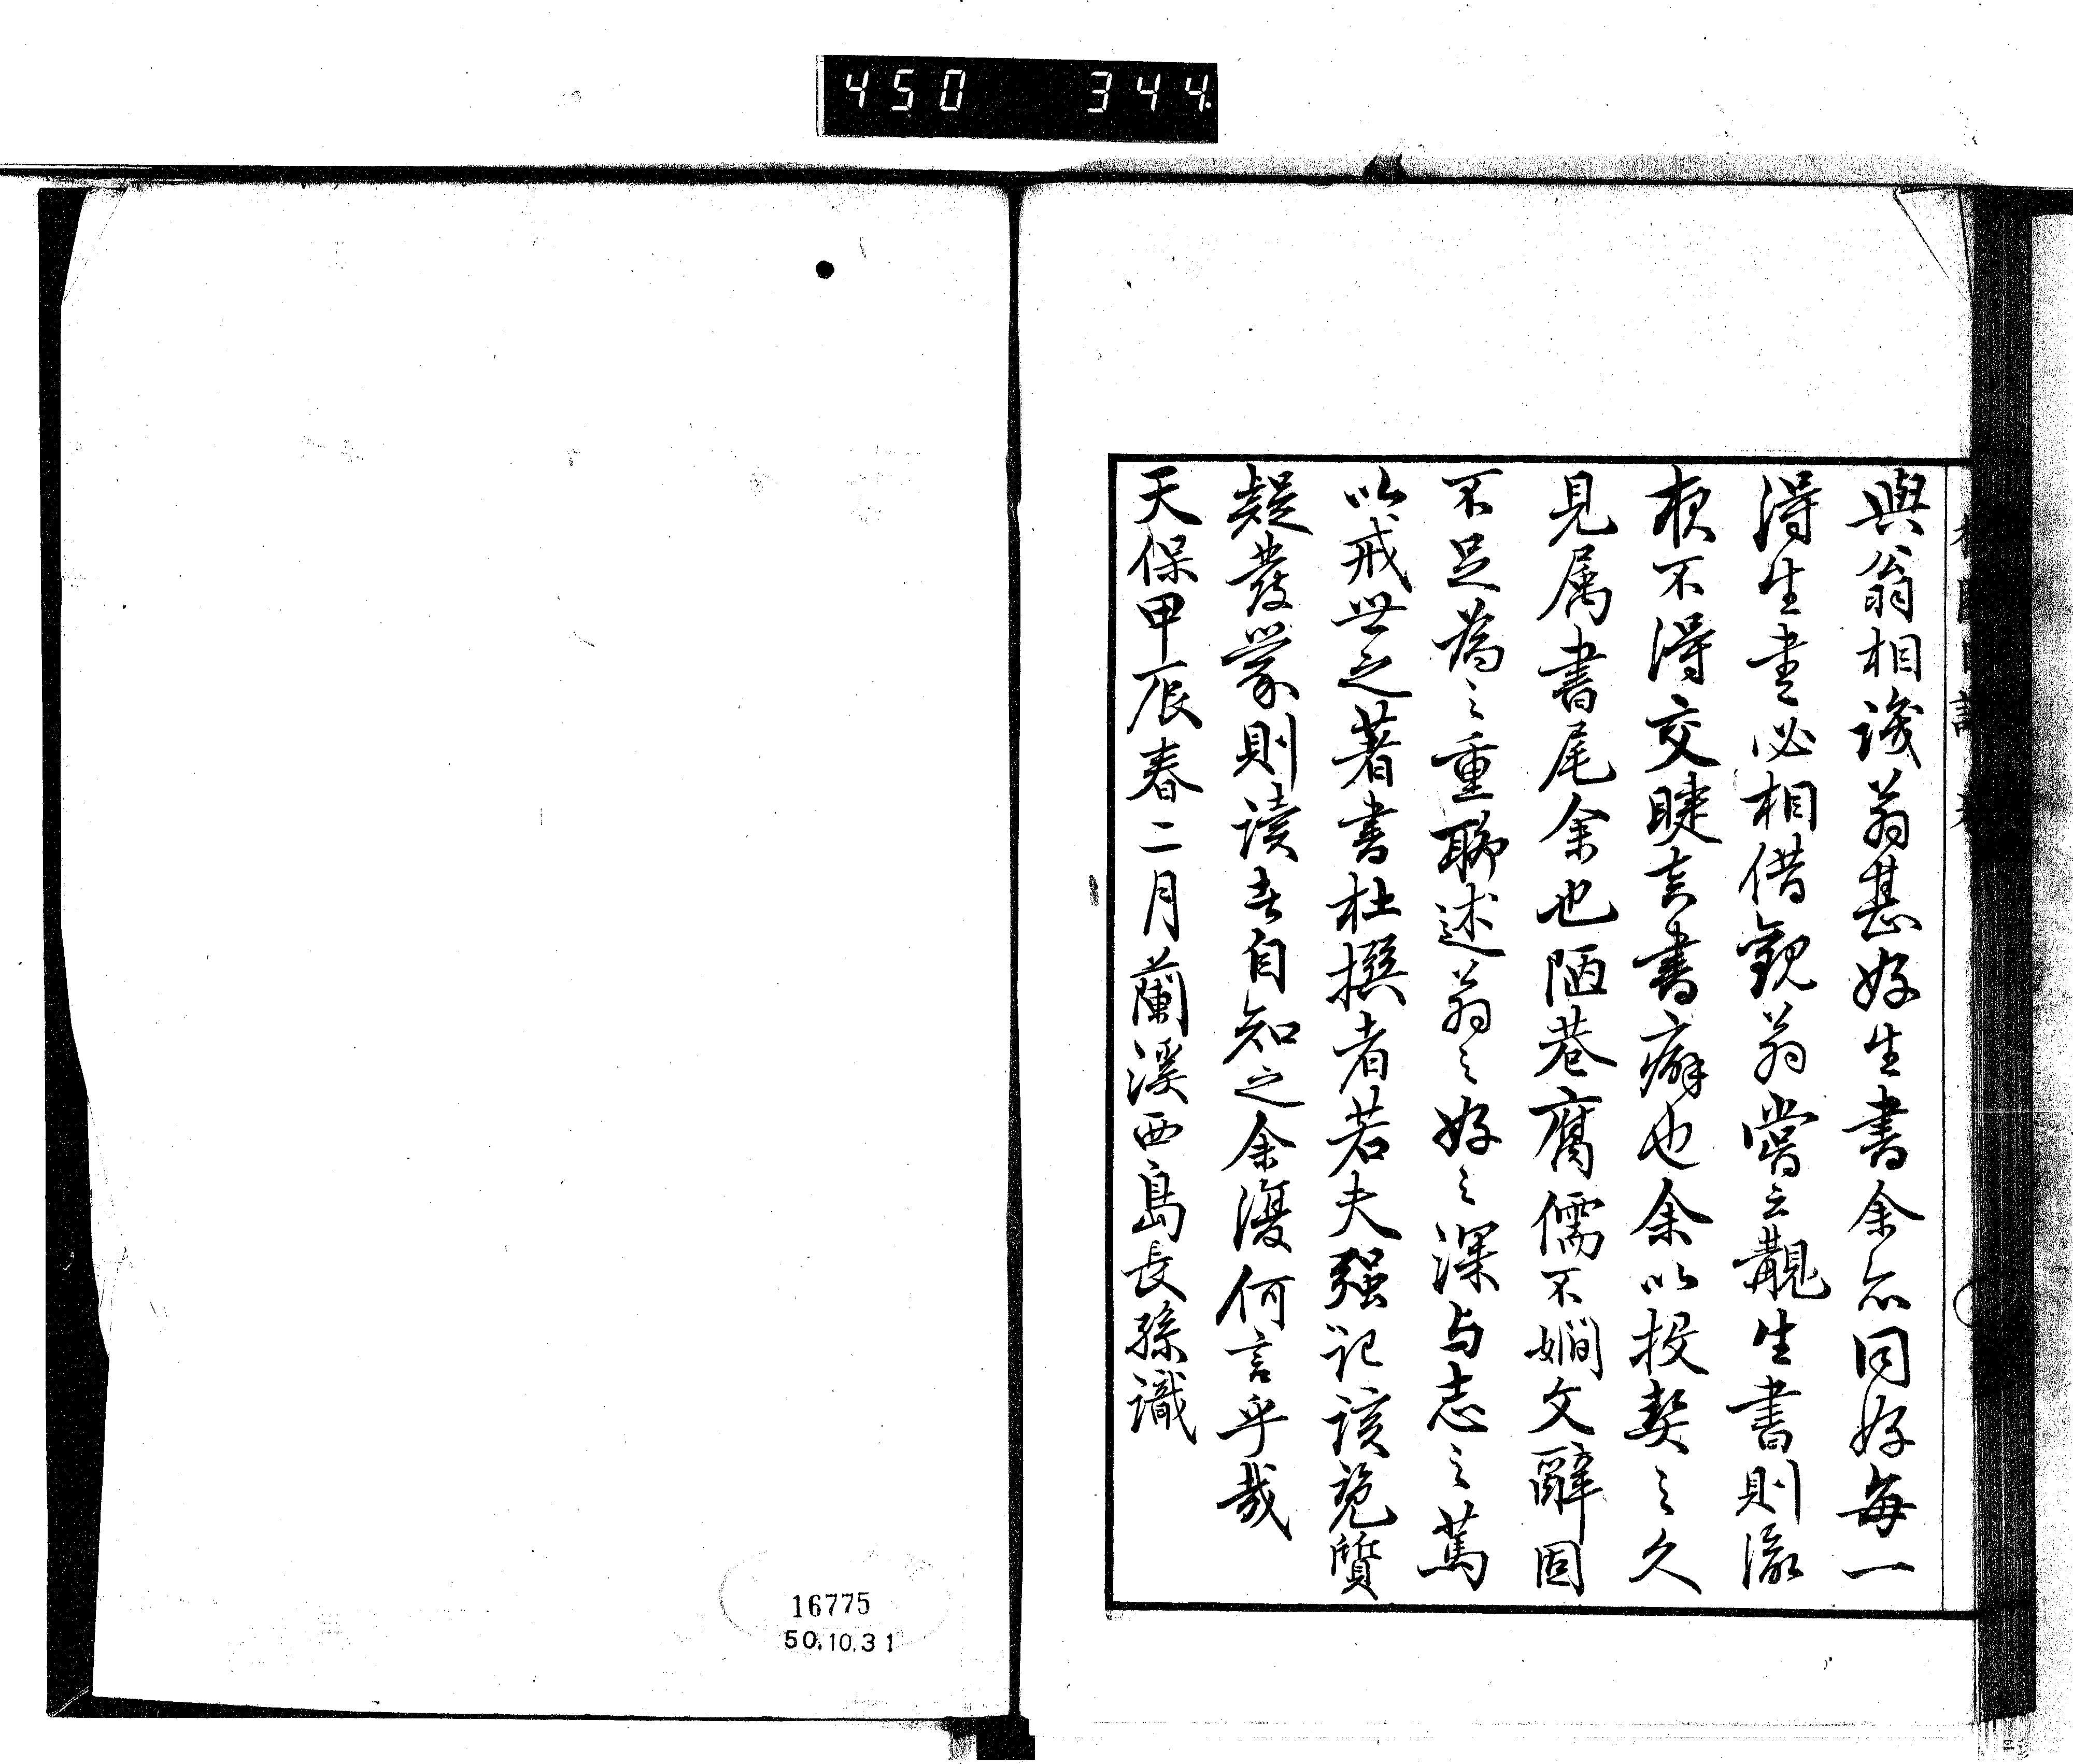 450 344
與翁相識翁甚好生書余亦同好每一
得生書必相借觀翁嘗云覩生書則徹
夜不得交睫真書癖也余以投契之久
見属書尾余也陋巷腐儒不嫻文辭固
不足為之重聊述翁之好之深与志之篤
以戒世之著書杜撰者若夫强記該覽質
疑發蒙則讀者自知之余復何言乎哉
天保甲辰春二月蘭溪西島長孫識
16775
50.10.31